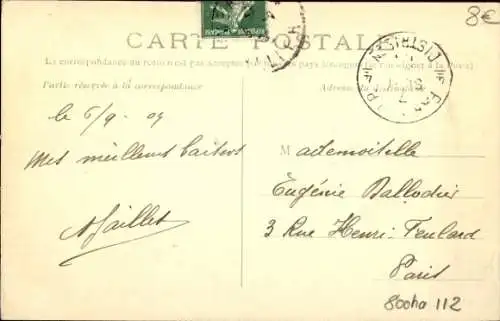 8€
CARTE POSTALE
La correspondance au recto n'est pas acceptée
pays
Partie réservée à la correspondance
Adresse du destinataire
le 6/9. 09
Mes meilleurs baisers
Mademoiselle
Eugénie Ballodier
3 Rue Henri-Feulard
Paris
800ha 112